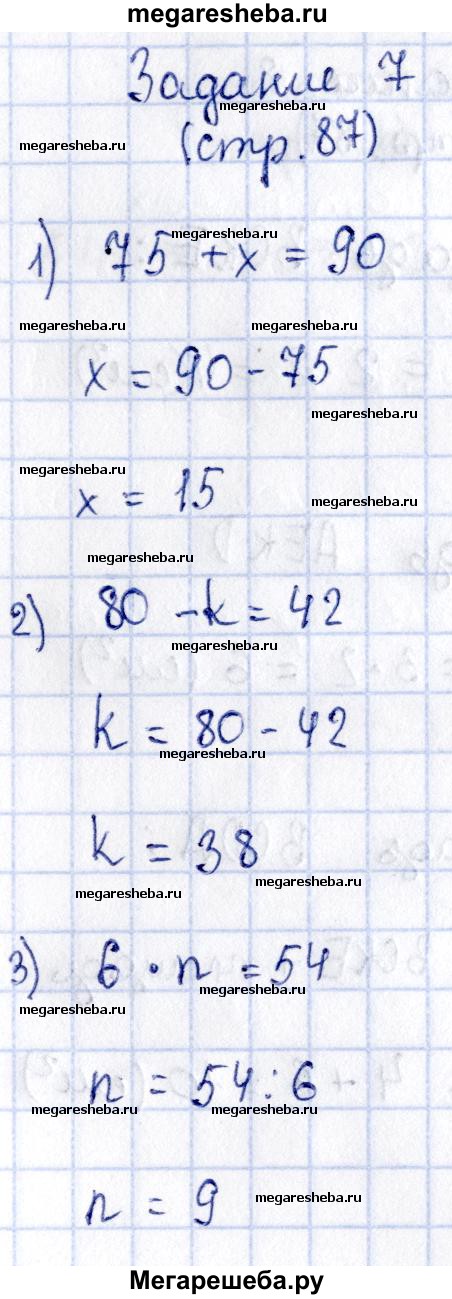 megaresheba.ru
Задание 7
megaresheba.ru
megaresheba.ru
(стр. 87)
megaresheba.ru
1) 75 + x = 90
megaresheba.ru megaresheba.ru
x = 90 - 75
megaresheba.ru
megaresheba.ru
x = 15
megaresheba.ru
megaresheba.ru
2) 80 - k = 42
megaresheba.ru
k = 80 - 42
megaresheba.ru
k = 38
megaresheba.ru
megaresheba.ru
3) 6 · n = 54
megaresheba.ru
megaresheba.ru
n = 54 : 6
megaresheba.ru megaresheba.ru
n = 9
megaresheba.ru
Мегарешеба.ру